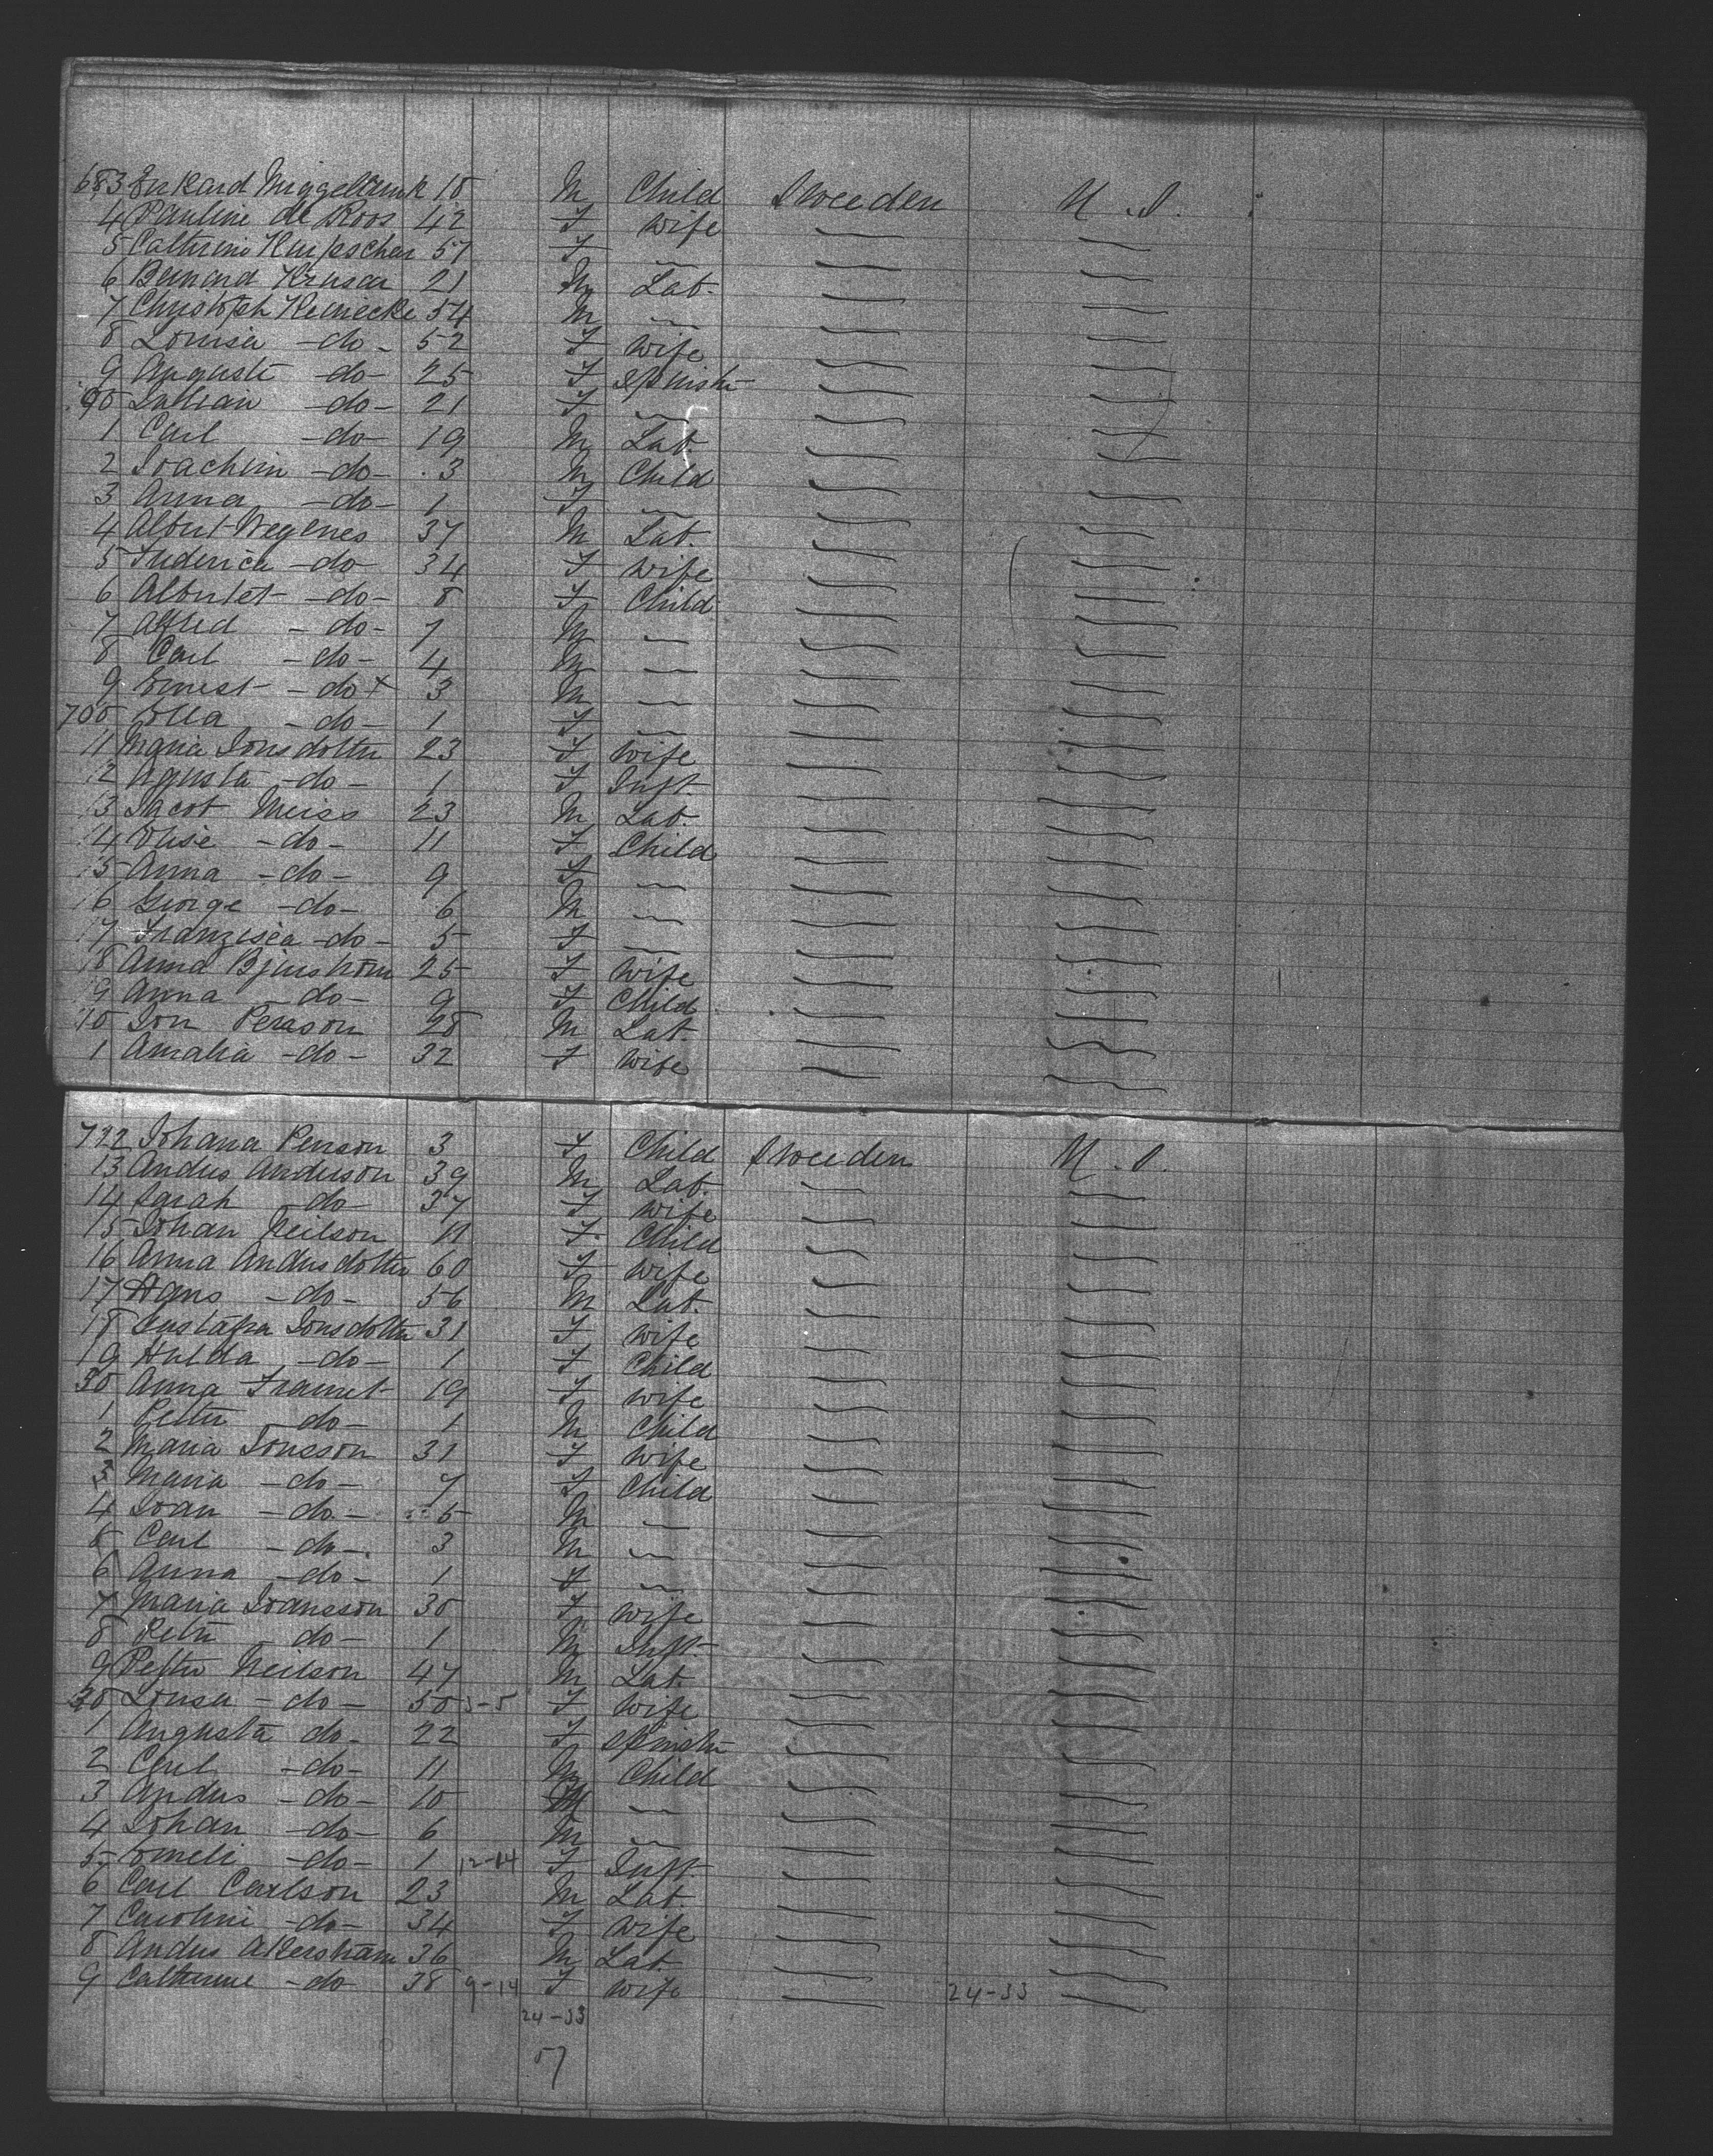 683 Erkard Miggelbrink 18 M Child Sweeden U.S.
4 Pauline de Roos 42 F wife
5 Catherine Kupscher 57 F
6 Bernard Kruser 21 M Lab.
7 Christoph Reinecke 54 M
8 Louisa -do- 52 F wife
9 Auguste -do- 25 F Spinster
90 -do- 21 F
1 Carl -do- 19 M Lab.
2 Joachim -do- 3 M Child
3 Anna -do- 1 F
4 Albert Wegenes 37 M Lab.
5 Frederica -do- 34 F wife
6 -do- 8 F Child
7 Alfred -do- 7 M
8 Carl -do- 4 M
9 Ernest -do- 3 M
700 Ella -do- 1 F
11 Maria Jonsdotter 23 F wife
12 Agusta -do- 1 F Inft.
13 Jacob Meiss 23 M Lab.
14 Elise -do- 11 F Child
15 Anna -do- 9 F
16 George -do- 6 M
17 Franzisca -do- 5 F
18 Anna Bjenström 25 F wife
19 Anna -do- 9 F Child
10 Jon Perason 28 M Lab.
1 Amalia -do- 32 F wife
722 Johana Person 3 F Child Sweeden U.S.
13 Andus Anderson 39 M Lab.
14 Sarah -do- 37 F wife
15 Johan Neilson 11 F. Child
16 Anna Andersdotter 60 F wife
17 Hans -do- 56 M Lab.
18 Gustafva Jonsdotter 31 F wife
19 Hulda -do- 1 F Child
30 Anna 19 F wife
1 Petter do- 1 M Child
2 Maria Jonsson 31 F wife
3 Maria -do- 7 F Child
4 Joan -do.- 5 M
5 Carl -do- 3 M
6 Anna -do- 1 F
7 Maria Joansson 30 F wife
8 Peter do- 1 M Inft.
9 Petter Neilson 47 M Lab.
30 Lousa -do- 50 F wife
1 Augusta do- 22 F Spinster
2 Carl -do- 11 M Child
3 Andus -do- 10 M
4 Johan -do- 6 M
5 Emeli -do- 1 12-14 F Inft.
6 Carl Carlson 23 M Lab.
7 Carolini -do- 34 F wife
8 Andus Akerstram 36 M Lab.
9 Catherine -do 38 9-14 F wife 24-33
24-33
57